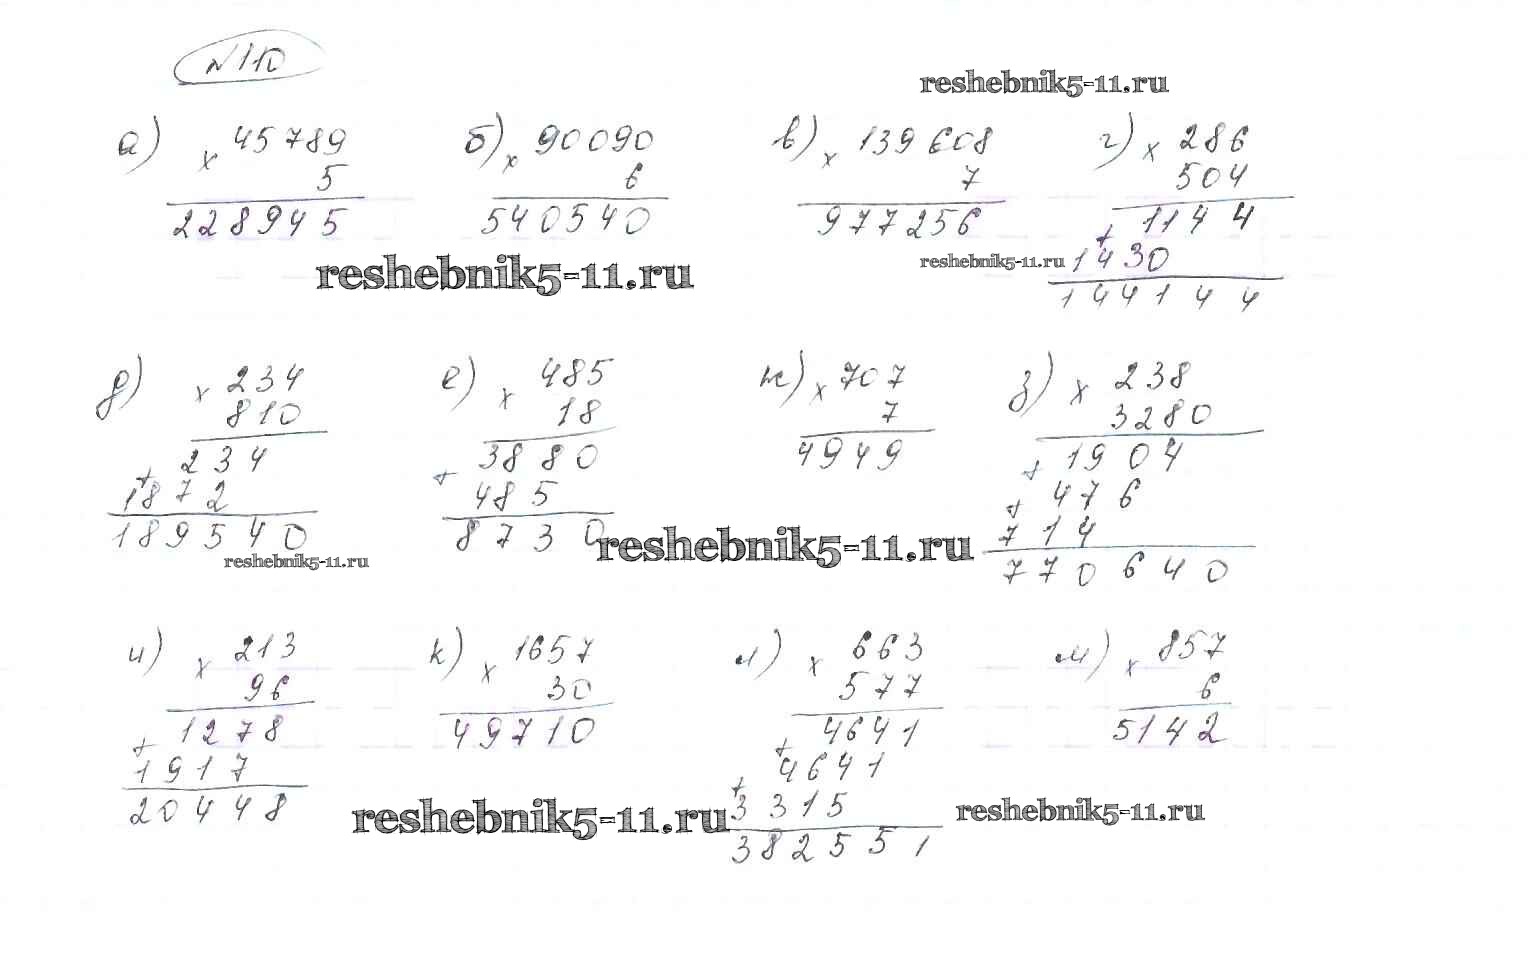 №110
reshebnik5-11.ru
а) × 45789 б) × 90090 в) × 139608 г) × 286
5 6 7 504
228945 540540 977256 + 1144
reshebnik5-11.ru reshebnik5-11.ru 1430
144144
д) × 234 е) × 485 ж) × 707 з) × 238
810 18 7 3280
+ 234 + 3880 4949 + 1904
1872 485 + 476
189540 8730 reshebnik5-11.ru 714
reshebnik5-11.ru 770640
и) × 213 к) × 1657 л) × 663 м) × 857
96 30 577 6
+ 1278 49710 + 4641 5142
1917 + 4641
20448 reshebnik5-11.ru 3315 reshebnik5-11.ru
382551